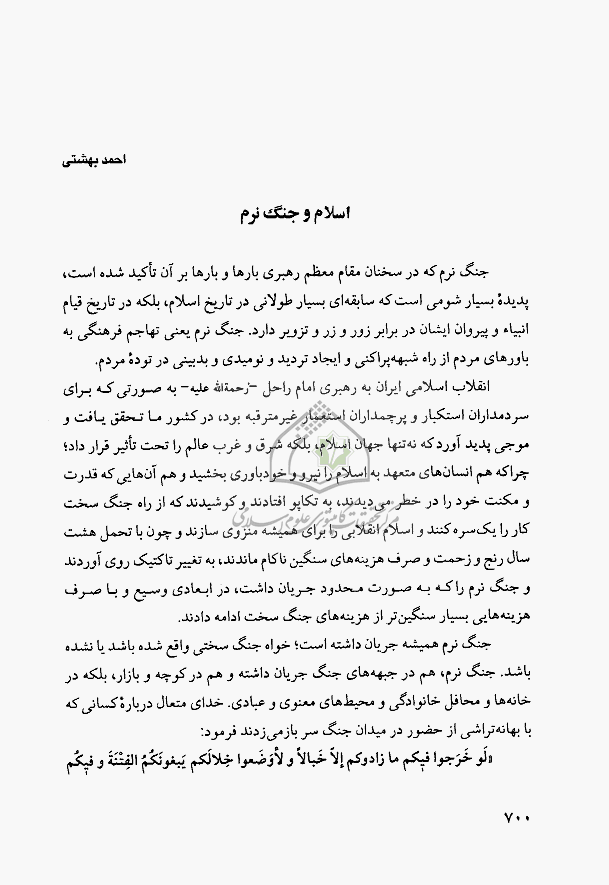 احمد بهشتی
اسلام و جنگ نرم
جنگ نرم که در سخنان مقام معظم رهبری بارها و بارها بر آن تأکید شده است،
پدیدهٔ بسیار شومی است که سابقه‌ای بسیار طولانی در تاریخ اسلام، بلکه در تاریخ قیام
انبیاء و پیروان ایشان در برابر زور و زر و تزویر دارد. جنگ نرم یعنی تهاجم فرهنگی به
باورهای مردم از راه شبهه‌پراکنی و ایجاد تردید و نومیدی و بدبینی در تودهٔ مردم.
انقلاب اسلامی ایران به رهبری امام راحل –رحمةالله علیه– به صورتی که برای
سردمداران استکبار و پرچمداران استعمار غیرمترقبه بود، در کشور ما تحقق یافت و
موجی پدید آورد که نه‌تنها جهان اسلام، بلکه شرق و غرب عالم را تحت تأثیر قرار داد؛
چراکه هم انسان‌های متعهد به اسلام را نیرو و خودباوری بخشید و هم آن‌هایی که قدرت
و مکنت خود را در خطر می‌دیدند، به تکاپو افتادند و کوشیدند که از راه جنگ سخت
کار را یک‌سره کنند و اسلام انقلابی را برای همیشه منزوی سازند و چون با تحمل هشت
سال رنج و زحمت و صرف هزینه‌های سنگین ناکام ماندند، به تغییر تاکتیک روی آوردند
و جنگ نرم را که به صورت محدود جریان داشت، در ابعادی وسیع و با صرف
هزینه‌هایی بسیار سنگین‌تر از هزینه‌های جنگ سخت ادامه دادند.
جنگ نرم همیشه جریان داشته است؛ خواه جنگ سختی واقع شده باشد یا نشده
باشد. جنگ نرم، هم در جبهه‌های جنگ جریان داشته و هم در کوچه و بازار، بلکه در
خانه‌ها و محافل خانوادگی و محیط‌های معنوی و عبادی. خدای متعال دربارهٔ کسانی که
با بهانه‌تراشی از حضور در میدان جنگ سر بازمی‌زدند فرمود:
«لَو خَرَجوا فیکم ما زادوکم إلاّ خَبالاً و لأوضَعوا خِلالَکم یَبغونَکُمُ الفِتْنَةَ و فیکُم
۷۰۰